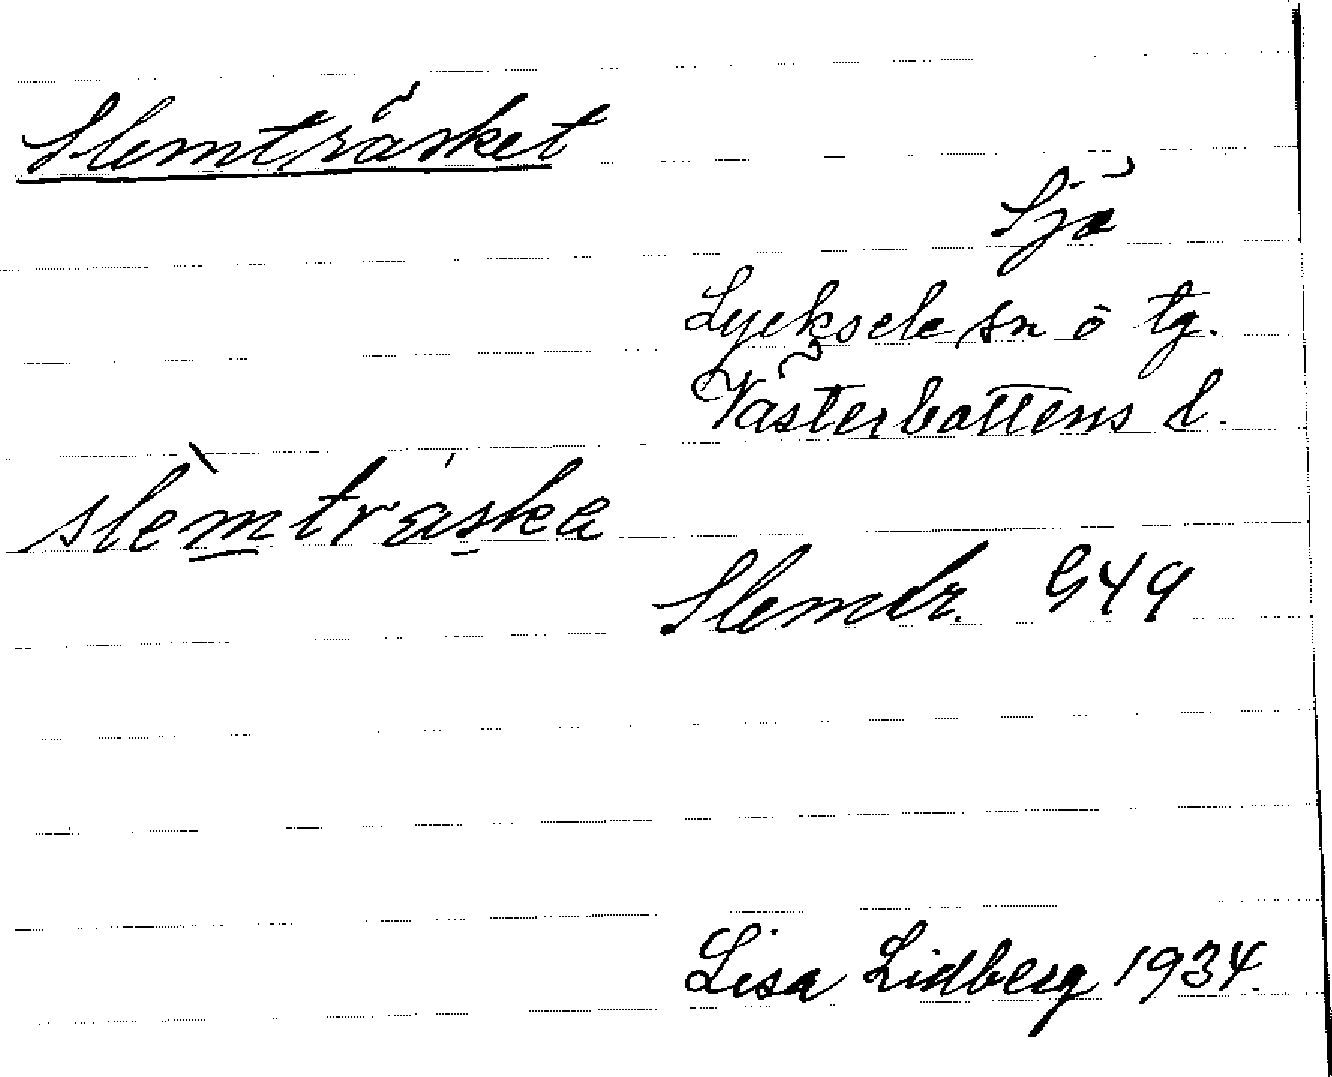 Slemträsket
Sjö
Lycksele sn o tg.
Västerbottens l.
slèmtráska
Slemtr. G49
Lisa Lidberg 1934.